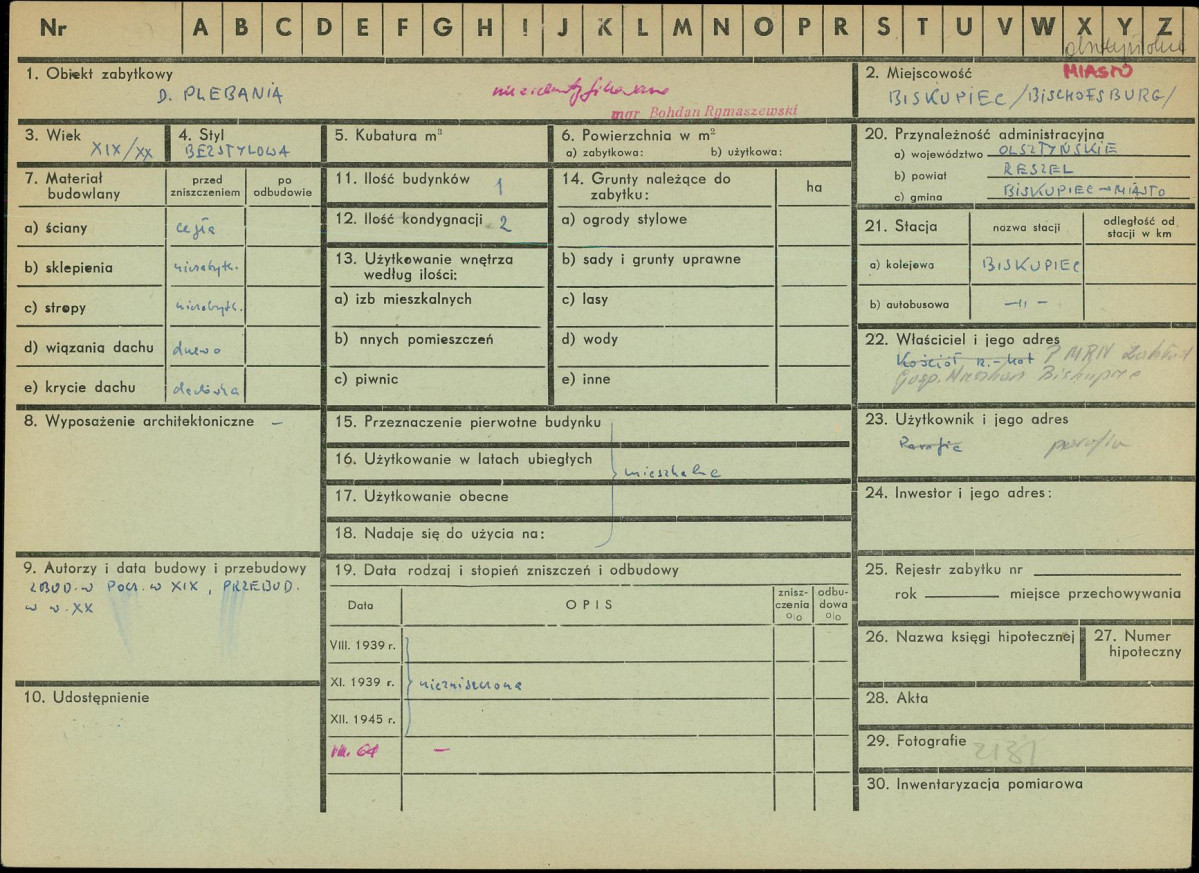 Nr A B C D E F G H I J K L M N O P R S T U V W X Y Z
1. Obiekt zabytkowy
D. PLEBANIA
niezidentyfikowane
mgr Bohdan Rymaszewski
2. Miejscowość
MIASTO
BISKUPIEC /BISCHOFSBURG/
3. Wiek
XIX/XX
4. Styl
BEZSTYLOWA
5. Kubatura m³
6. Powierzchnia w m²
a) zabytkowa: b) użytkowa:
20. Przynależność administracyjna
a) województwo OLSZTYŃSKIE
b) powiat RESZEL
c) gmina BISKUPIEC-MIASTO
7. Materiał budowlany
przed zniszczeniem
po odbudowie
a) ściany cegła
b) sklepienia niezabytk.
c) stropy niezabytk.
d) wiązania dachu drewno
e) krycie dachu dachówka
11. Ilość budynków 1
12. Ilość kondygnacji 2
13. Użytkowanie wnętrza
według ilości:
a) izb mieszkalnych
b) nnych pomieszczeń
c) piwnic
14. Grunty należące do
zabytku:
ha
a) ogrody stylowe
b) sady i grunty uprawne
c) lasy
d) wody
e) inne
21. Stacja
nazwa stacji
odległość od
stacji w km
a) kolejowa BISKUPIEC
b) autobusowa -"-
22. Właściciel i jego adres
Kościół rz.-kat P MRN Zakład
Gosp. Mieszkan Biskupiec
8. Wyposażenie architektoniczne -
15. Przeznaczenie pierwotne budynku
16. Użytkowanie w latach ubiegłych
mieszkalne
17. Użytkowanie obecne
18. Nadaje się do użycia na:
23. Użytkownik i jego adres
Parafia parafia
24. Inwestor i jego adres:
9. Autorzy i data budowy i przebudowy
ZBUD. W POCZ. W XIX, PRZEBUD.
W W. XX
10. Udostępnienie
19. Data rodzaj i stopień zniszczeń i odbudowy
Data
OPIS
znisz-
czenia
%
odbu-
dowa
%
VIII. 1939 r.
XI. 1939 r. niezniszczona
XII. 1945 r.
VIII. 61 -
25. Rejestr zabytku nr
rok miejsce przechowywania
26. Nazwa księgi hipotecznej
27. Numer
hipoteczny
28. Akta
29. Fotografie
30. Inwentaryzacja pomiarowa